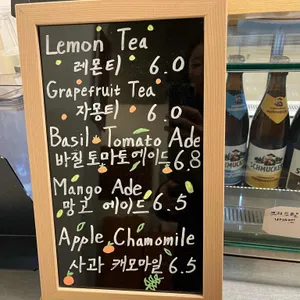 Lemon Tea
레몬티 6.0
Grapefruit Tea
자몽티 6.0
Basil Tomato Ade
바질 토마토에이드 6.8
Mango Ade
망고 에이드 6.5
Apple Chamomile
사과 캐모마일 6.5
SCHMUCKER